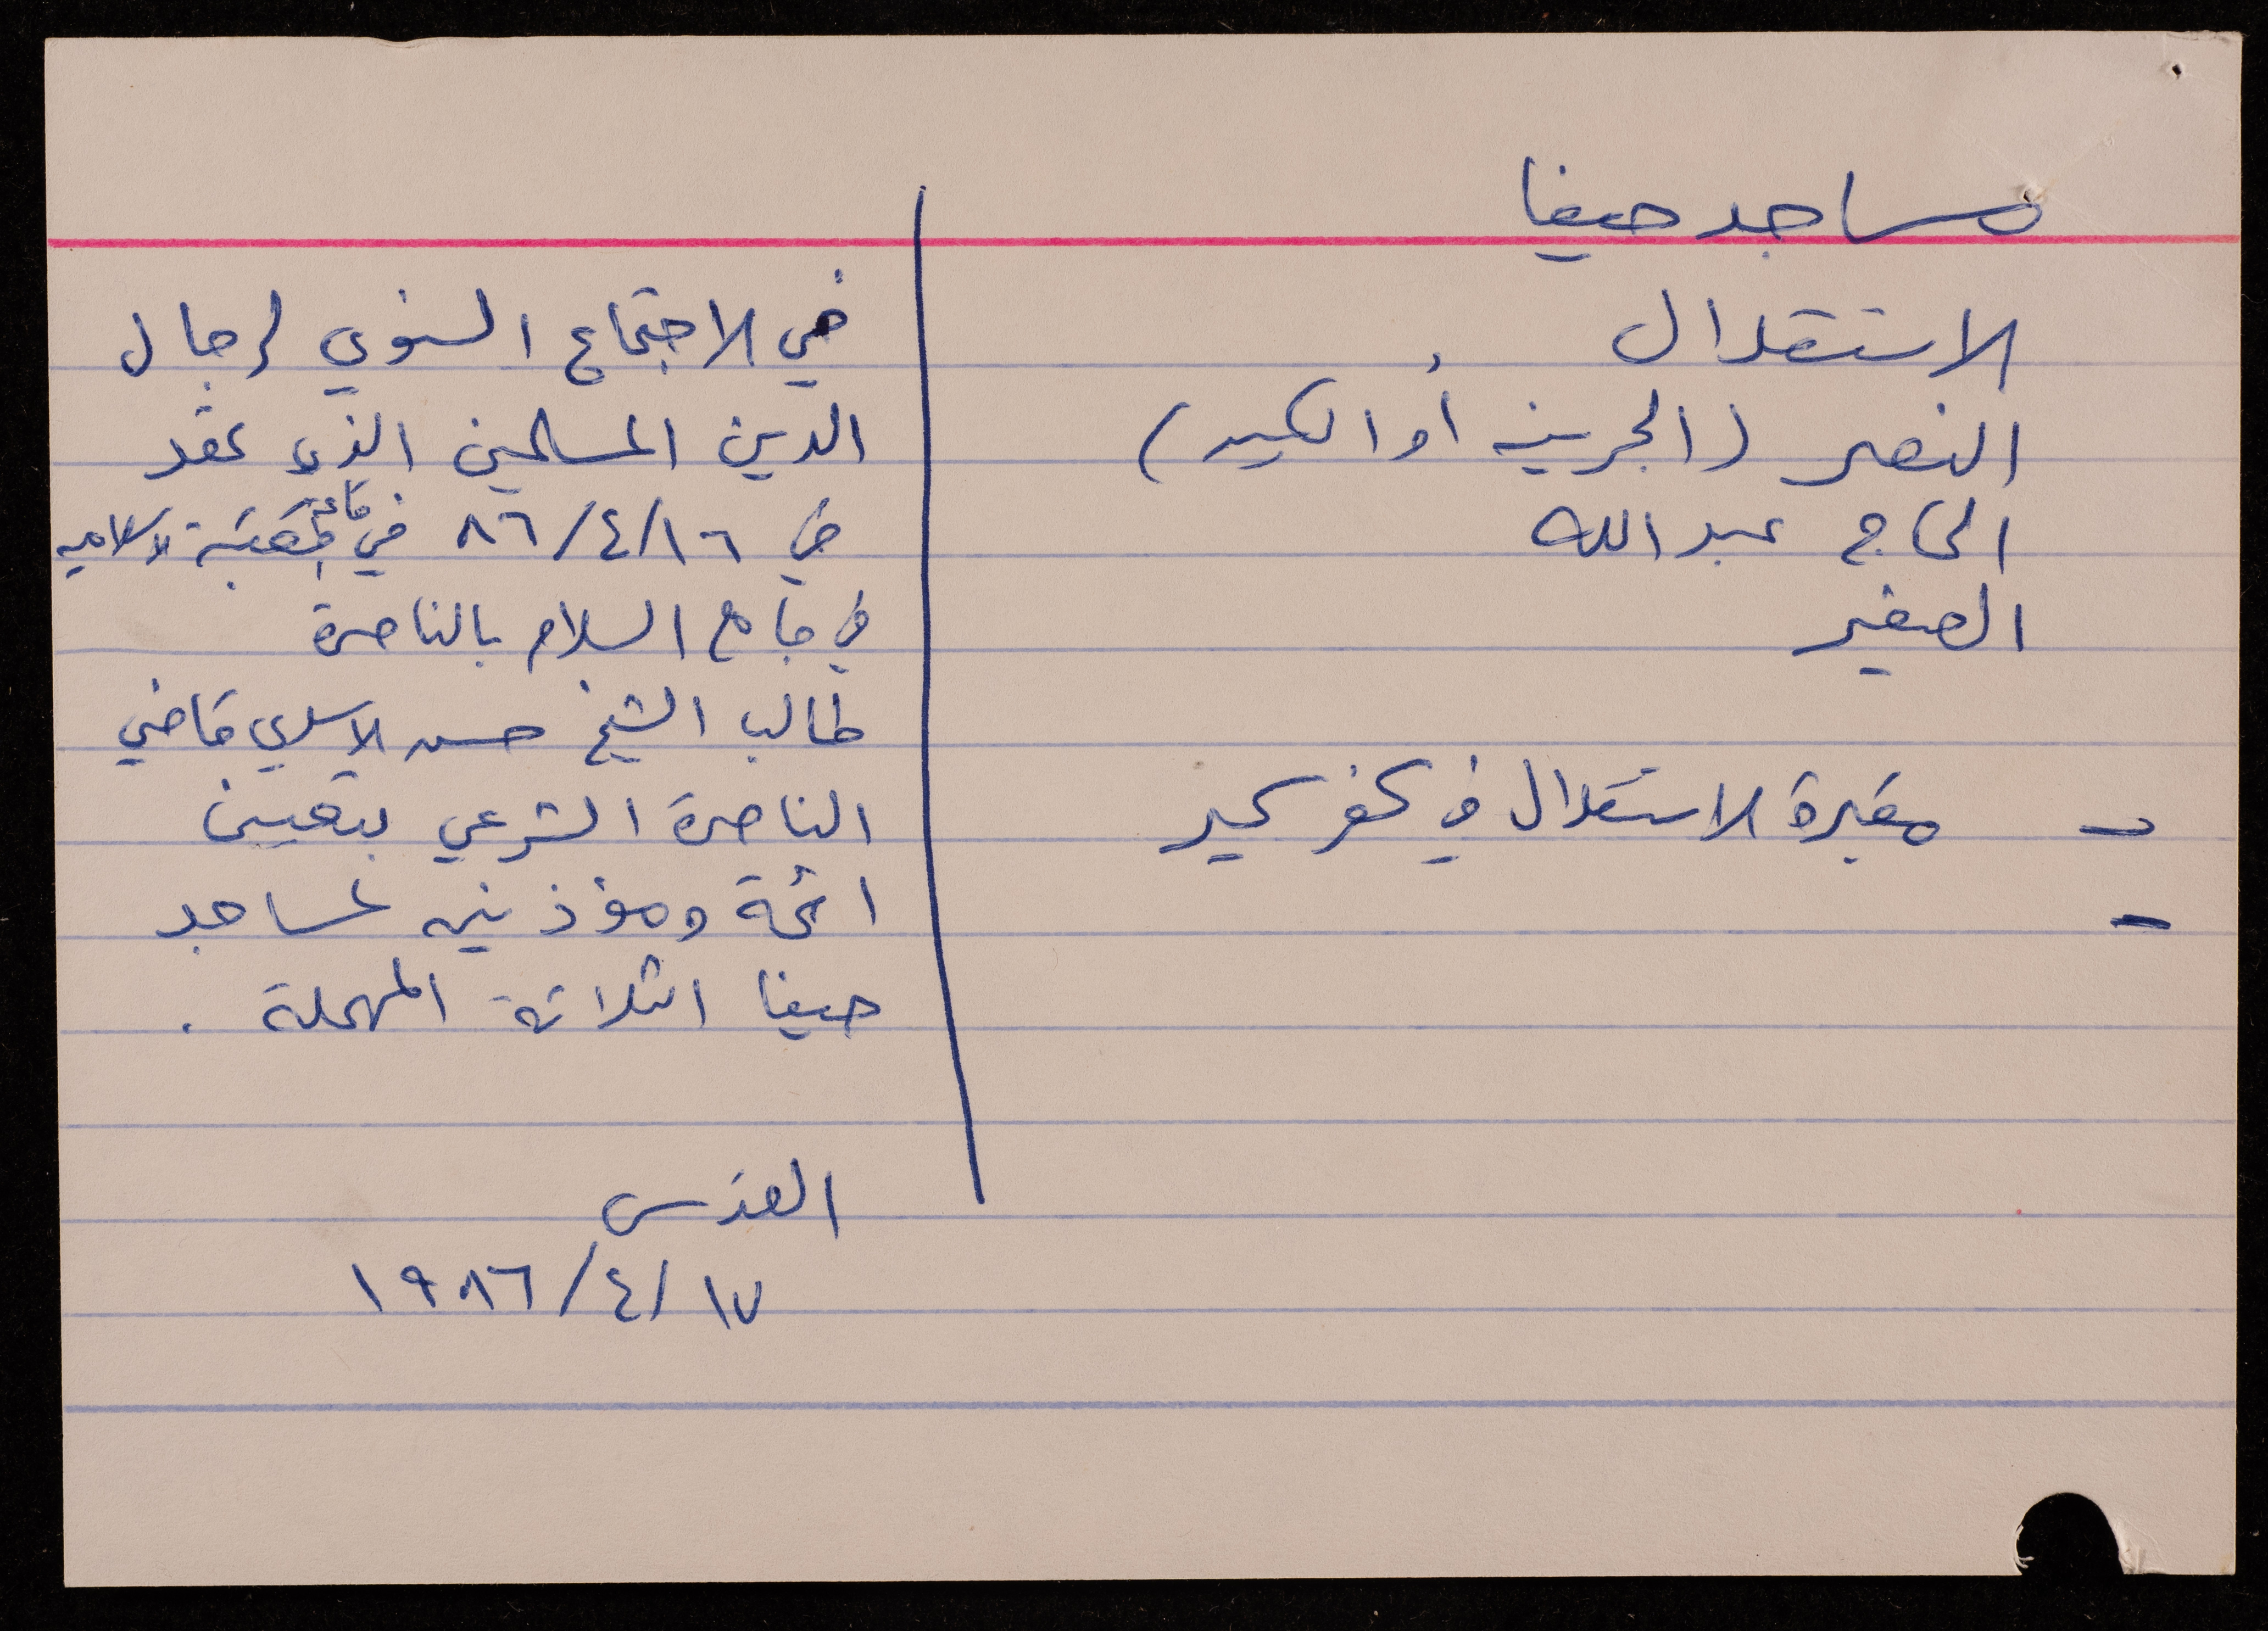 مساجد حيفا
الاستقلال
النصر (الجرينه أو الكبير)
الحاج عبد الله
الصغير
- مقبرة الاستقلال في كفر كبير
-
في الاجتماع السنوي لرجال
الدين المسلمين الذي عقد
في ١٦/٤/٨٦ في قاعة الاسلاميه
في جامع السلام بالناصرة
طالب الشيخ حسن الاسدي قاضي
الناصرة الشرعي بتعيين
ائمة ومؤذنين لمساجد
حيفا الثلاثة المهملة .
القدس
١٧/٤/١٩٨٦